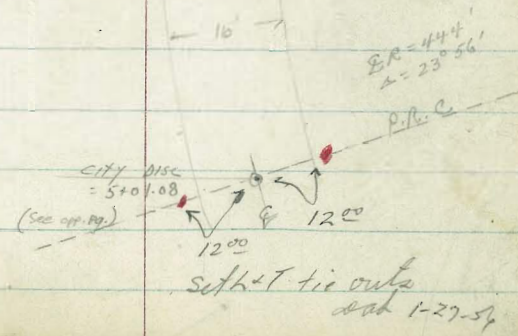 16'
℄R = 444'
Δ = 23° 56'
P.R.C.
CITY DISC
= 5+01.08
(See opp. pg.)
℄
12 00
12 00
Set L&T tie outs
1-27-56